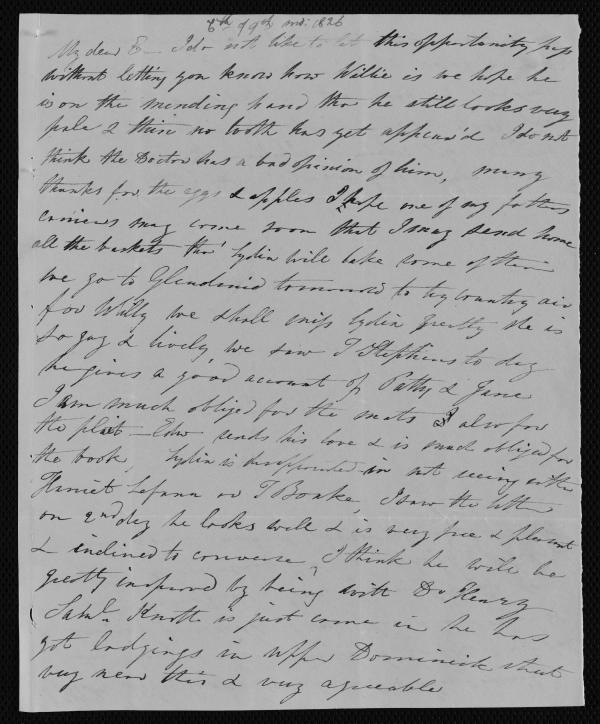 6th of 9th mo: 1826
My dear E— I do not like to let this opportunity pass
without letting you know how Willie is we hope he
is on the mending hand tho' he still looks very
pale & thin no tooth has yet appear'd I do not
think the Doctor has a bad opinion of him, many
thanks for the eggs & apples I hope one of my fathers
may come soon that I may send home
all the baskets tho' Lydia will take some of them
we go to tomorrow to try country air
for Willy we shall miss Lydia greatly she is
so gay & lively, we saw T Stephens to day
he gives a good account of Patty & Jane
I am much obliged for the mats & also for
the — Edw sends his love & is much obliged for
the book, Lydia is disappointed in not seeing either
Harriet or T Boake, I saw the latter
on 2nd day he looks well & is very free & pleasant
& inclined to converse, I think he will be
greatly improved by being with Dr Henry
Saml. Knott is just come in he has
got lodgings in upper Dominick street
very near this & very agreeable